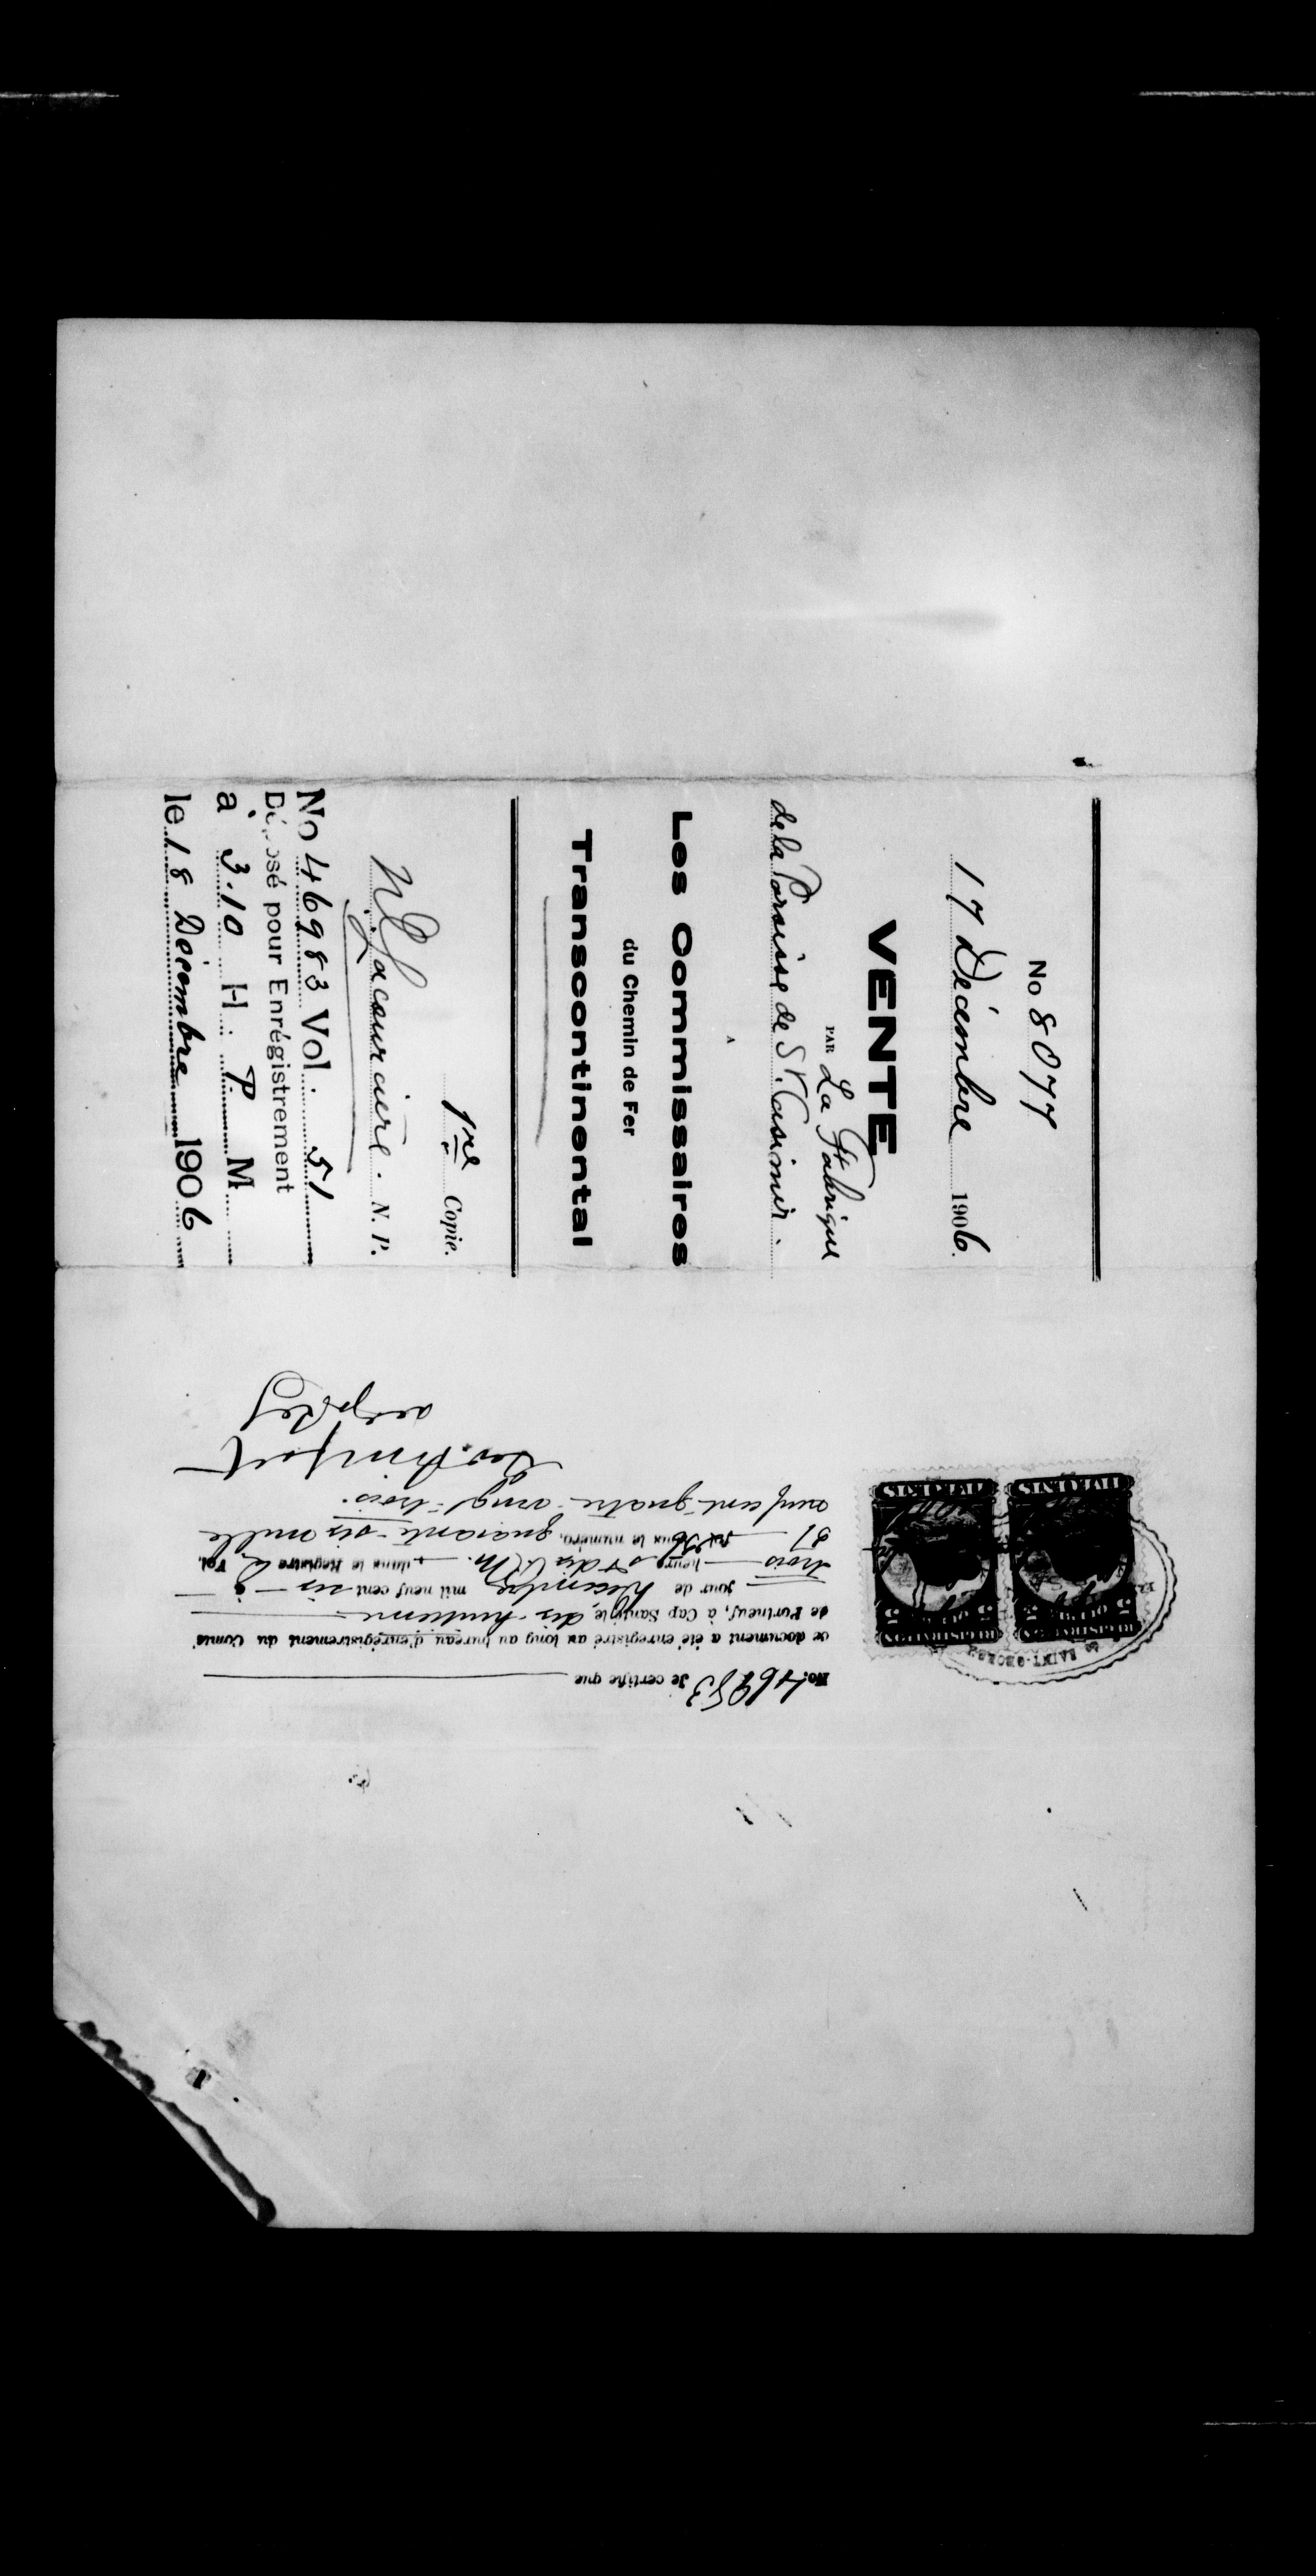 No 8077
17 Décembre 1906.
VENTE
PAR La Fabrique
de la Paroisse de St. Casimir.
A
Les Commissaires
du Chemin de Fer
Transcontinental
1re Copie.
Lacourciere. N. P.
No 46983 Vol. 51
Déposé pour Enrégistrement
à 3.10 H. P. M
le 18 Décembre 1906
No. 46983 Je certifie que
ce document a été enregistré au long au bureau d'enrégistrement du Comté
de Portneuf, à Cap Santé, le dix-huitieme
jour de Décembre mil neuf cent six à
trois heures et dix P.M. dans le Registre B, Vol.
51 sous le numéro, quarante-six mille
neuf cent quatre-vingt-trois.
REGISTRATION
5 QUEBEC 5
CENTS
REGISTRATION
5 QUEBEC 5
CENTS